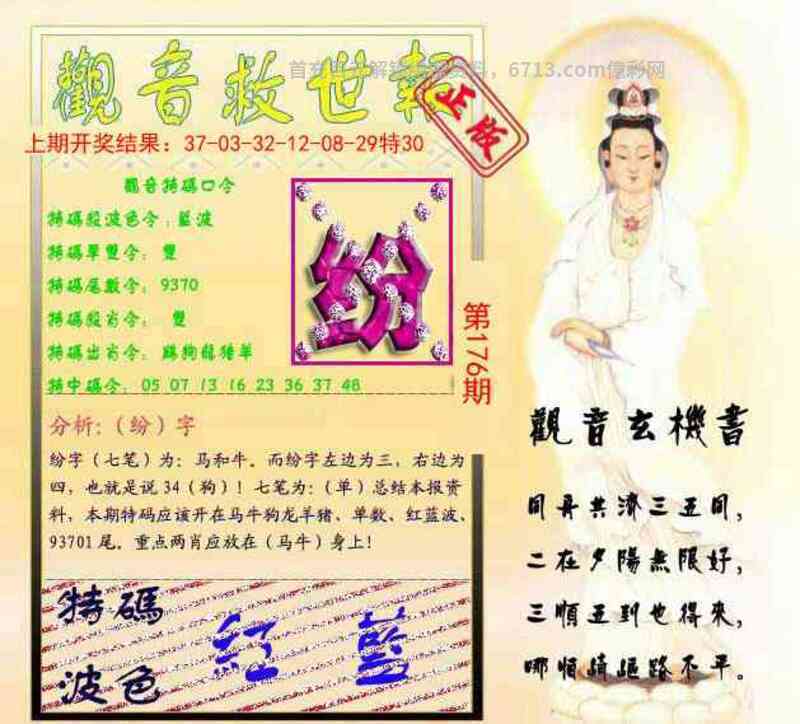 首充
解
资料，6713.com億彩网
觀音救世報
正版
上期开奖结果：37-03-32-12-08-29特30
觀音特碼口令
特碼段波色令：藍波
特碼單雙令：雙
特碼尾數令：9370
特碼段肖令：雙
特碼出肖令：鷄狗龍猪羊
特中碼令：05 07 13 16 23 36 37 48
纷
第176期
分析：（纷）字
纷字（七笔）为：马和牛。而纷字左边为三，右边为
四，也就是说34（狗）！七笔为：（单）总结本报资
料，本期特码应该开在马牛狗龙羊猪、单数、红蓝波、
93701尾。重点两肖应放在（马牛）身上！
特碼
波色
紅 藍
觀音玄機書
同舟共濟三五同，
二在夕陽無限好，
三順五到也得來，
哪怕崎嶇路不平。